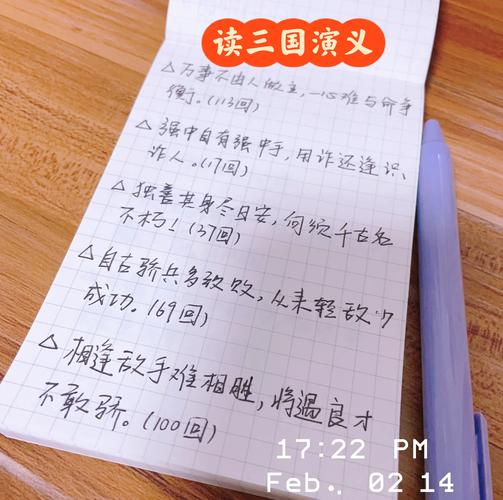 读三国演义
△万事不由人做主,一心难与命争
衡。(113回)
△强中自有强中手,用诈还逢识
诈人。(17回)
△独善其身尽日安,何须千古名
不朽!(37回)
△自古骄兵多致败,从来轻敌少
成功。(69回)
△相逢敌手难相胜,将遇良才
不敢骄。(100回)
17:22 PM
Feb., 02 14